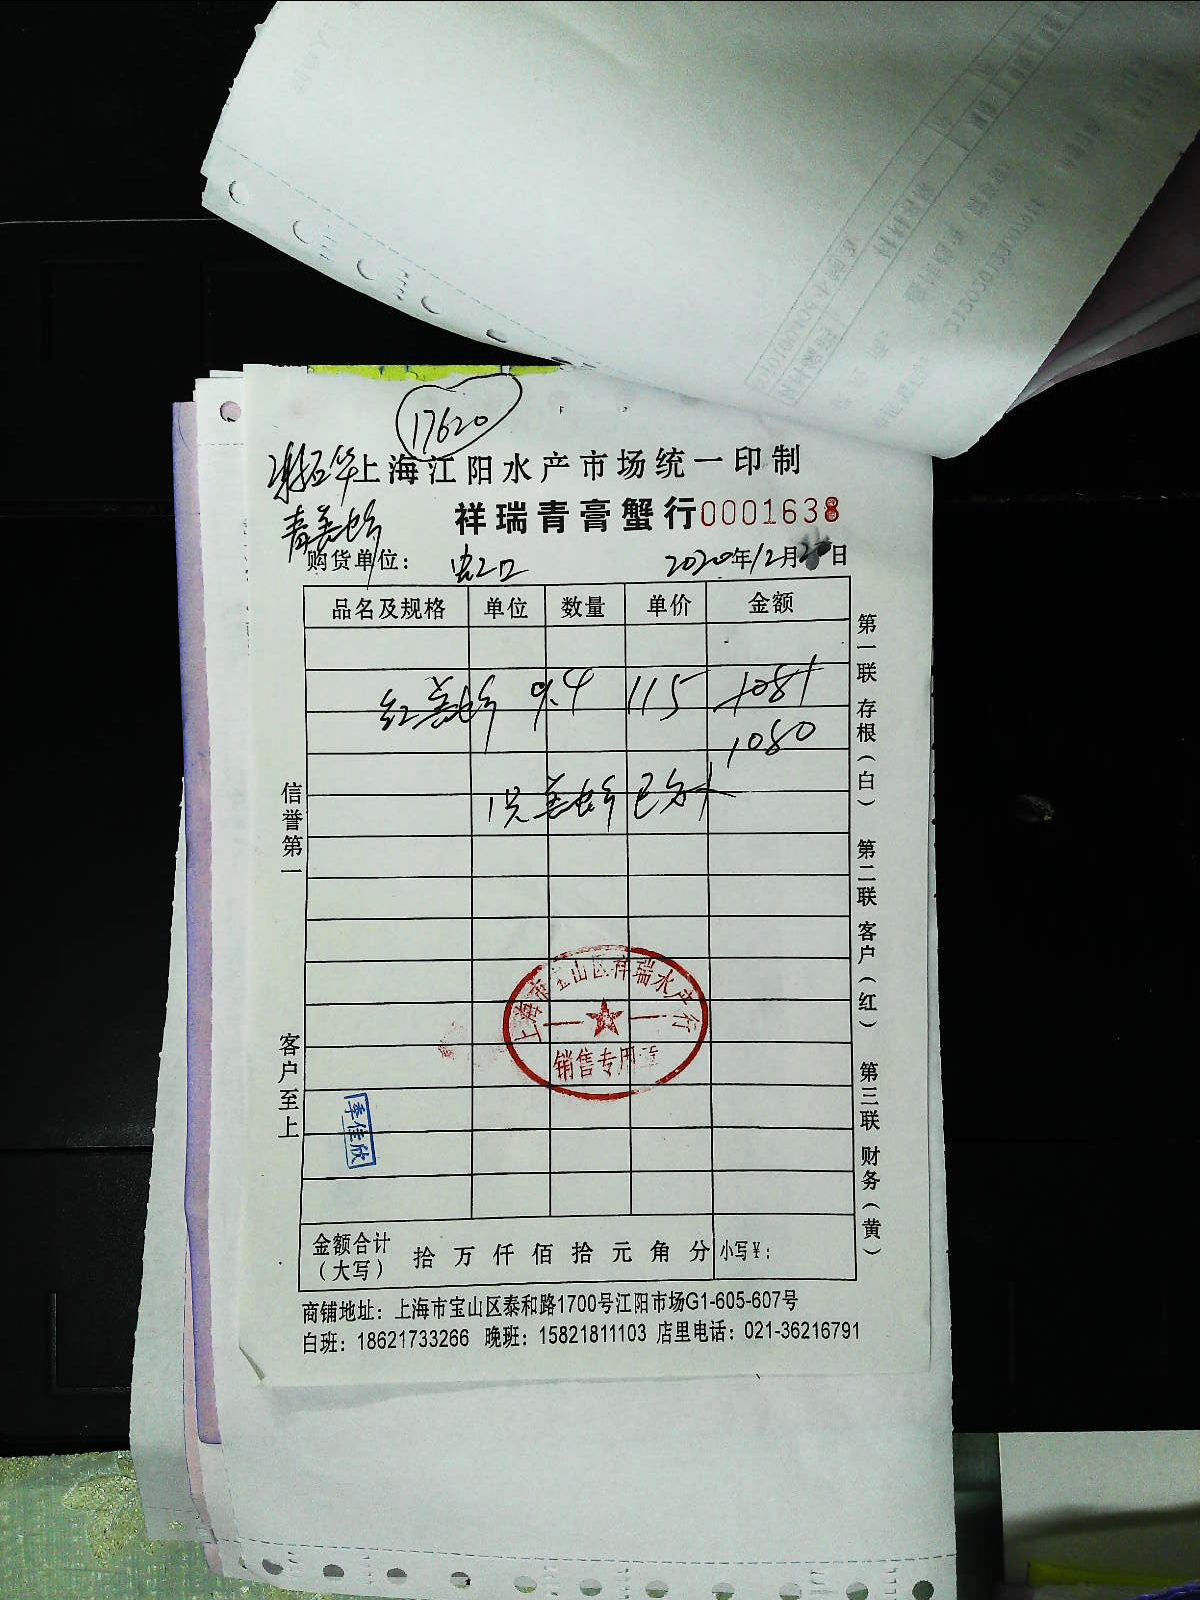 17620
上海江阳水产市场统一印制
祥瑞青膏蟹行 0001638
购货单位： 虹口 2020年12月20日
品名及规格 单位 数量 单价 金额
9.4 115 1081
1080
信誉第一
客户至上
第一联 存根（白） 第二联 客户（红） 第三联 财务（黄）
上海市宝山区祥瑞水产行
销售专用章
季佳欣
金额合计（大写） 拾 万 仟 佰 拾 元 角 分 小写￥：
商铺地址：上海市宝山区泰和路1700号江阳市场G1-605-607号
白班：18621733266 晚班：15821811103 店里电话：021-36216791